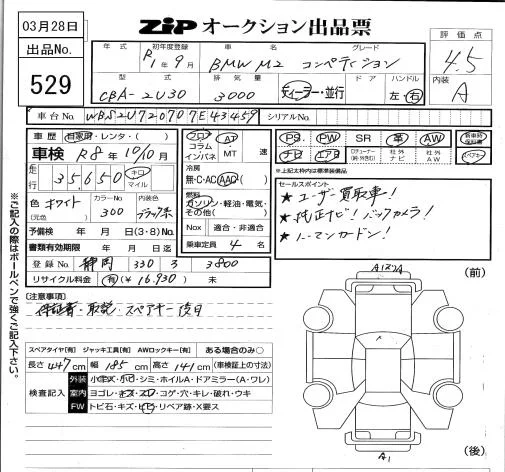 03月28日
ZIP オークション出品票
出品No.
529
年式 初年度登録 車名 グレード
R1年9月 BMW M2 コンペティション
型式 排気量 ドア ハンドル
CBA-2U30 3000 ディーラー・並行 左・右
評価点
4.5
内装
A
車台No. WBS2U720707E43459 シリアルNo.
車歴 自家用・レンタ・( )
車検 R8年10/10月
走行 35,650 キロ マイル
色 ホワイト (元色) カラーNo. 300 内装色 ブラック系
予備検 年 月 日(3・8)No.
書類有効期限 年 月 日迄
登録No. 静岡 330 3 3800
リサイクル料金 有(¥16,930) 未
フロア コラム インパネ AT・MT 速
冷房 無・C・AC・AAC
燃料 ガソリン・軽油・電気・その他( )
Nox 適合・非適合
乗車定員 4 名
PS PW SR 革 AW 新車時保証書
ナビ エアB TVチューナー(純・外含む) 社外ナビ 社外AW スペアキー
※上記太枠内は標準装備品
セールスポイント
★ユーザー買取車!
★純正ナビ!バックカメラ!
★ハーマンカードン!
[注意事項]
保証書・取説・スペアキー後日
スペアタイヤ[有] ジャッキ工具[有] AWロックキー[有] ある場合のみ○
長さ447cm 幅185cm 高さ141cm (車検証上の寸法)
検査記入
外装 小キズ・小凹・シミ・ホイルA・ドアミラー(A・ワレ)
室内 ヨゴレ・キズ・スレ・コゲ・穴・キレ・破れ・ウキ
FW トビ石・キズ・ヒビ・リペア跡・X要ス
(前)
(後)
A1
※ご記入の際はボールペンで強くご記入下さい。